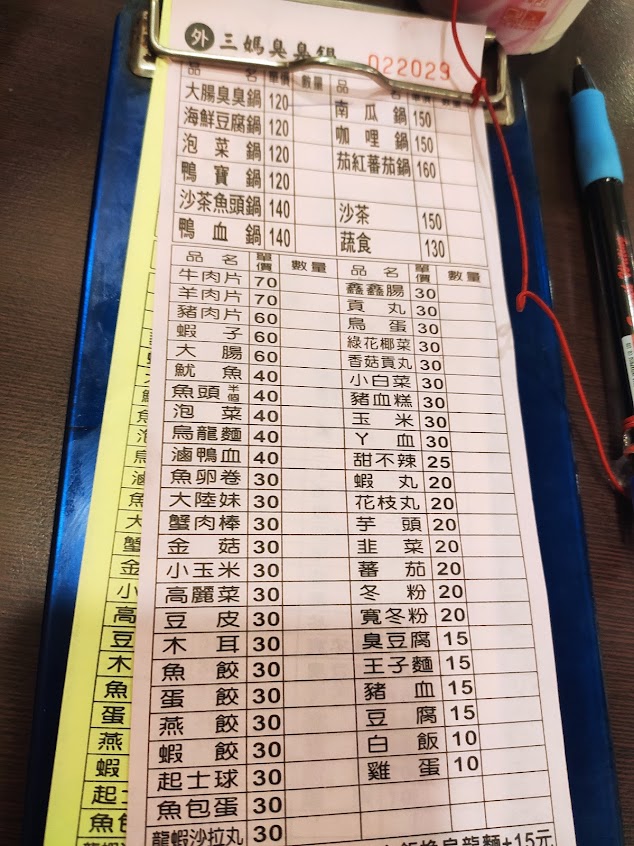 外 三媽臭臭鍋 022029
品名 單價 數量 品名 單價 數量
大腸臭臭鍋 120 南瓜鍋 150
海鮮豆腐鍋 120 咖哩鍋 150
泡菜鍋 120 茄紅蕃茄鍋 160
鴨寶鍋 120
沙茶魚頭鍋 140 沙茶 150
鴨血鍋 140 蔬食 130
品名 單價 數量 品名 單價 數量
牛肉片 70 鑫鑫腸 30
羊肉片 70 貢丸 30
豬肉片 60 鳥蛋 30
蝦子 60 綠花椰菜 30
大腸 60 香菇貢丸 30
魷魚 40 小白菜 30
魚頭半個 40 豬血糕 30
泡菜 40 玉米 30
烏龍麵 40 丫血 30
滷鴨血 40 甜不辣 25
魚卵卷 30 蝦丸 20
大陸妹 30 花枝丸 20
蟹肉棒 30 芋頭 20
金菇 30 韭菜 20
小玉米 30 蕃茄 20
高麗菜 30 冬粉 20
豆皮 30 寬冬粉 20
木耳 30 臭豆腐 15
魚餃 30 王子麵 15
蛋餃 30 豬血 15
燕餃 30 豆腐 15
蝦餃 30 白飯 10
起士球 30 雞蛋 10
魚包蛋 30
龍蝦沙拉丸 30
飯換烏龍麵+15元